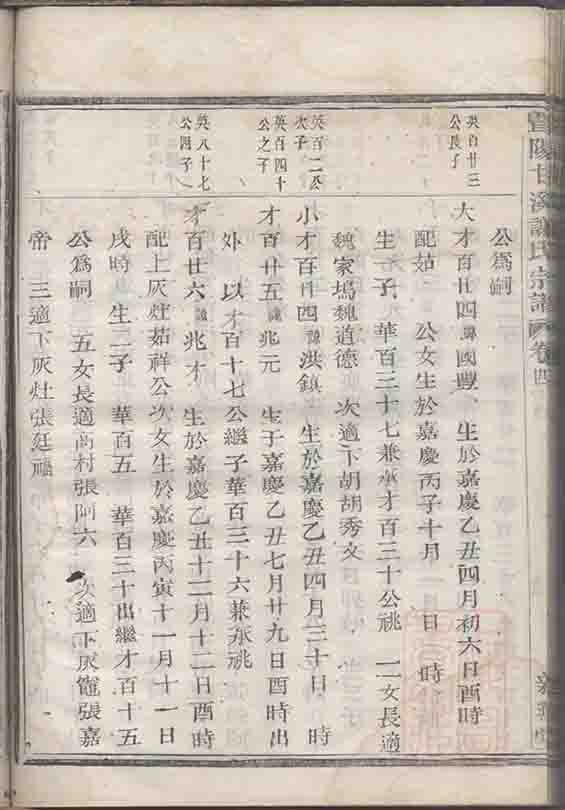 暨陽甘溪諸氏宗譜 卷四
公爲嗣
英百廿三公長子
大才百廿四諱國豐 生於嘉慶乙丑四月初六日酉時
配姑 公女生於嘉慶丙子十月 日 時
生一子 華百三十七兼承才百三十公祧 二女長適
魏家塢魏道德 次適下胡胡秀文
英百二公次子
小才百廿四諱洪鎮 生於嘉慶乙丑四月三十日 時
英百四十公之子
才百廿五諱兆元 生于嘉慶乙丑七月廿九日酉時出
外 以才百十七公繼子華百三十六兼承祧
英八十七公四子
才百廿六諱兆才 生於嘉慶乙丑十二月十二日酉時
配上灰灶茹祥公次女生於嘉慶丙寅十一月十一日
戌時 生二子 華百五 華百三十出繼才百十五
公爲嗣 五女長適高村張阿六 次適下灰竈張嘉
帝 三適下灰灶張廷